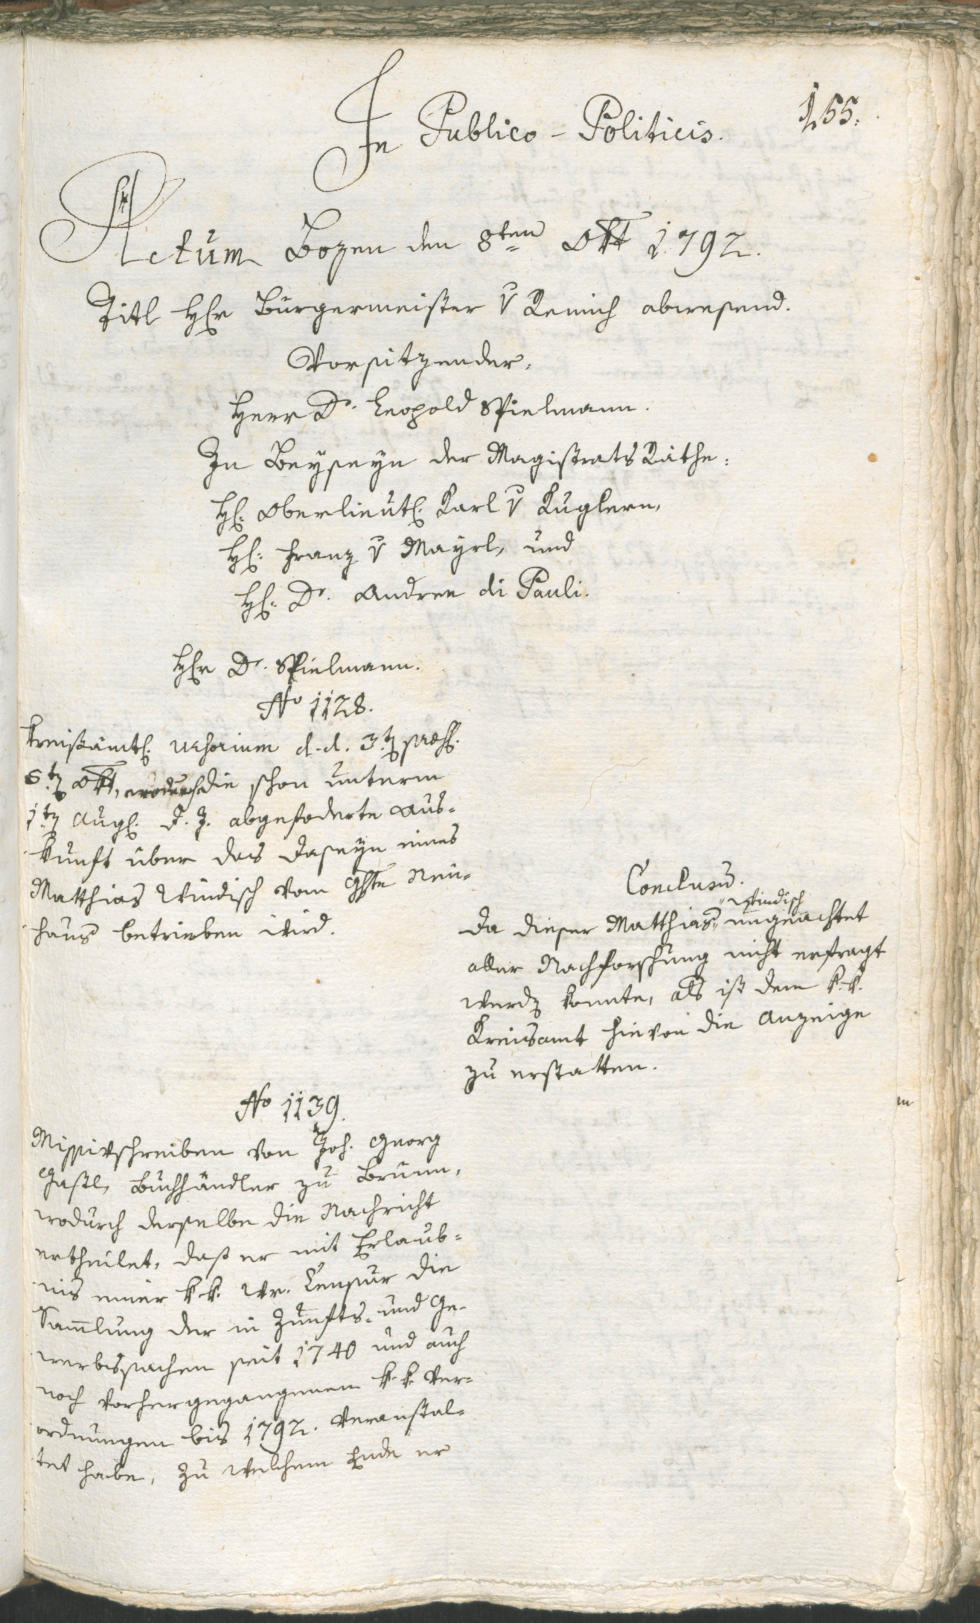 155.
In Publico-Politicis.
Actum Bozen den 8ten Okt 1792.
Titl Hr Bürgermeister v Remich abwesend.
Vorsitzender,
Herr Dr. Leopold Spielmann.
In Beyseyn der Magistrats Räthe:
H: Oberlieut: Karl v Kuglern,
H: Franz v Mayrl, und
H: Dr. Andree di Pauli.
Hr Dr. Spielmann.
No 1128.
Kreisämtl: Urhorium d.d. 3t präs:
6t Okt, wodurch die schon unterm
1t Aug: d. J. abgefoderte Aus-
kunft über das Daseyn eines
Matthias Windisch vom Gste Neu-
haus betrieben wird.
Conclusum.
Da dieser Matthias Windisch ungeachtet
aller Nachforschung nicht erfragt
werd konnte, als ist dem k.k.
Kreisamt hievon die Anzeige
zu erstatten.
No 1139.
Missivschreiben von Joh. Georg
Gastl, Buchhändler zu Brünn,
wodurch derselbe die Nachricht
ertheilet, daß er mit Erlaub-
nis einer k.k. Wr. Censur die
Samlung der in Zunfts- und Ge-
werbssachen seit 1740 und auch
noch vorhergegangenen k.k. Ver-
ordnungen bis 1792. veranstal-
tet habe, zu welchem Ende er